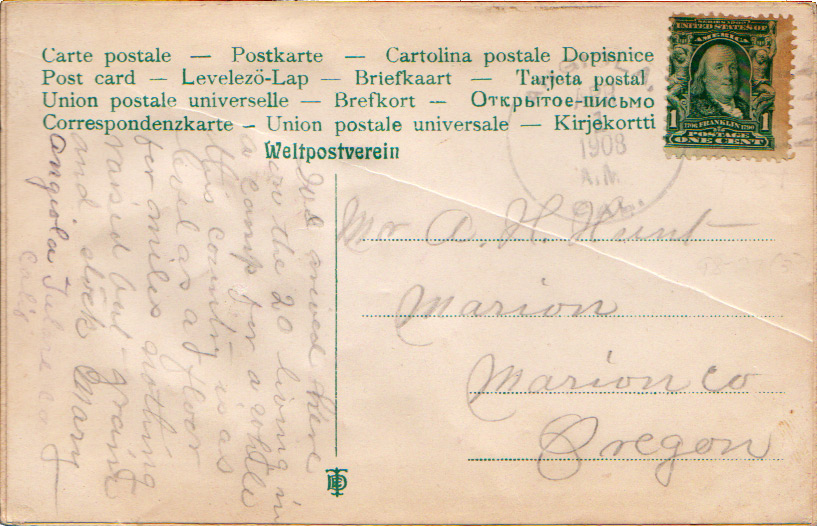 Carte postale — Postkarte — Cartolina postale Dopisnice
Post card — Levelezö-Lap — Briefkaart — Tarjeta postal
Union postale universelle — Brefkort — Открытое-письмо
Correspondenzkarte — Union postale universale — Kirjekortti
Weltpostverein
SERIES 1902
UNITED STATES OF
AMERICA
1 1
1706 FRANKLIN 1790
POSTAGE
ONE CENT
1
1908
A.M.
CAL.
Mr A. H. Hunt
Marion
Marion Co
Oregon
moved here
the 20 living in
a camp for a while
this country is as
level as a floor
for miles nothing
raised but grain
and stock Mary
Angiola Tulare Co
Calif